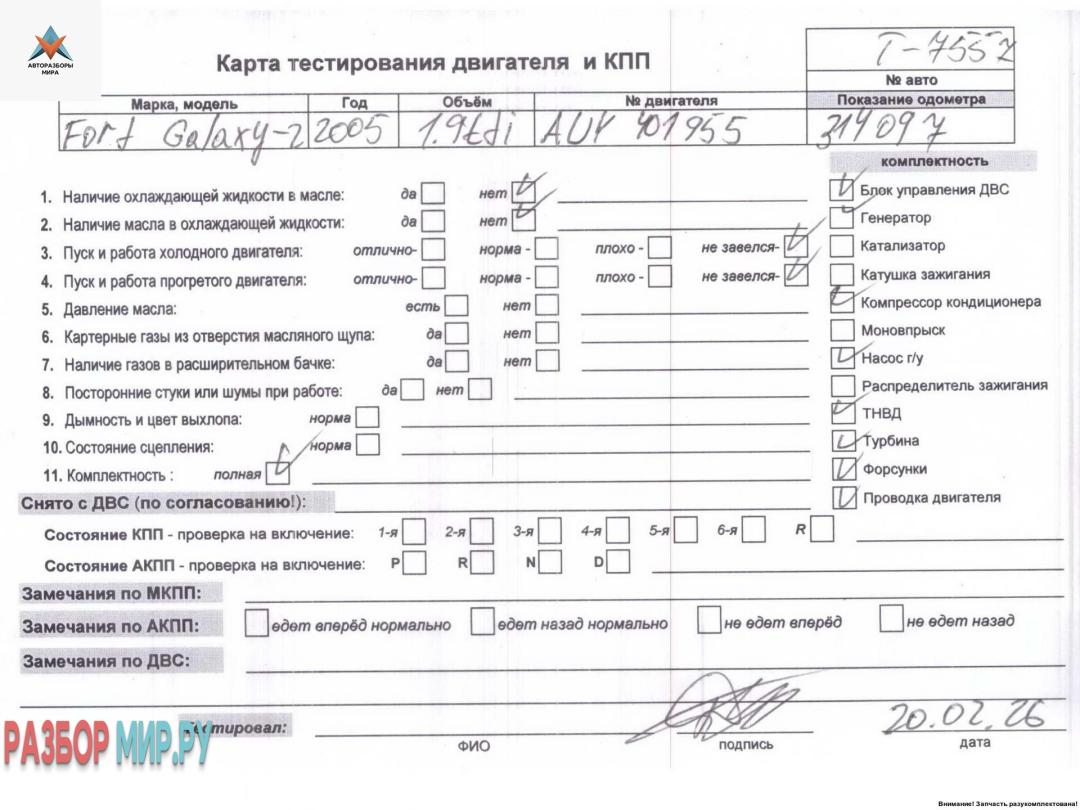 АВТОРАЗБОРЫ
МИРА
Карта тестирования двигателя и КПП
T-7557
№ авто
Марка, модель Год Объём № двигателя Показание одометра
Ford Galaxy-2 2005 1.9tdi AUY 401955 314097
комплектность
1. Наличие охлаждающей жидкости в масле: да нет
Блок управления ДВС
2. Наличие масла в охлаждающей жидкости: да нет
Генератор
3. Пуск и работа холодного двигателя: отлично- норма - плохо - не завелся-
Катализатор
4. Пуск и работа прогретого двигателя: отлично- норма - плохо - не завелся-
Катушка зажигания
5. Давление масла: есть нет
Компрессор кондиционера
6. Картерные газы из отверстия масляного щупа: да нет
Моновпрыск
7. Наличие газов в расширительном бачке: да нет
Насос г/у
8. Посторонние стуки или шумы при работе: да нет
Распределитель зажигания
9. Дымность и цвет выхлопа: норма
ТНВД
10. Состояние сцепления: норма
Турбина
11. Комплектность : полная
Форсунки
Проводка двигателя
Снято с ДВС (по согласованию!):
Состояние КПП - проверка на включение: 1-я 2-я 3-я 4-я 5-я 6-я R
Состояние АКПП - проверка на включение: P R N D
Замечания по МКПП:
Замечания по АКПП: едет вперёд нормально едет назад нормально не едет вперёд не едет назад
Замечания по ДВС:
Тестировал:
20.02.26
ФИО подпись дата
РАЗБОРМИР.РУ
Внимание! Запчасть разукомплектована!